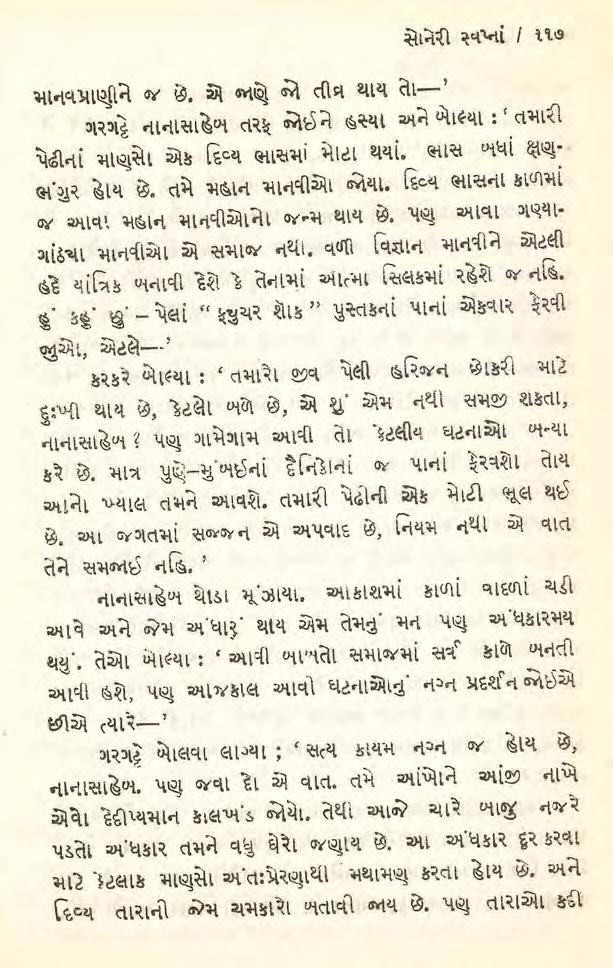 સોનેરી સ્વપ્નાં / ૧૧૭
માનવપ્રાણીને જ છે. એ જાણે જો તીવ્ર થાય તો—’
ગરગટ્ટે નાનાસાહેબ તરફ જોઈને હસ્યા અને બોલ્યા : ‘ તમારી
પેઢીનાં માણસો એક દિવ્ય ભાસમાં મોટા થયાં. ભાસ બધાં ક્ષણ-
ભંગુર હોય છે. તમે મહાન માનવીઓ જોયા. દિવ્ય ભાસના કાળમાં
જ આવા મહાન માનવીઓનો જન્મ થાય છે. પણ આવા ગણ્યા-
ગાંઠ્યા માનવીઓ એ સમાજ નથી. વળી વિજ્ઞાન માનવીને એટલી
હદે યાંત્રિક બનાવી દેશે કે તેનામાં આત્મા સિલકમાં રહેશે જ નહિ.
હું કહું છું – પેલાં “ ફ્યુચર શૉક ” પુસ્તકનાં પાનાં એકવાર ફેરવી
જુઓ, એટલે—’
કરકરે બોલ્યા : ‘ તમારો જીવ પેલી હરિજન છોકરી માટે
દુઃખી થાય છે, કેટલો બળે છે, એ શું એમ નથી સમજી શકતા,
નાનાસાહેબ ? પણ ગામેગામ આવી તો કેટલીય ઘટનાઓ બન્યા
કરે છે. માત્ર પુણે-મુંબઈનાં દૈનિકોનાં જ પાનાં ફેરવશો તોય
આનો ખ્યાલ તમને આવશે. તમારી પેઢીની એક મોટી ભૂલ થઈ
છે. આ જગતમાં સજ્જન એ અપવાદ છે, નિયમ નથી એ વાત
તેને સમજાઈ નહિ. ’
નાનાસાહેબ થોડા મૂંઝાયા. આકાશમાં કાળાં વાદળાં ચડી
આવે અને જેમ અંધારું થાય એમ તેમનું મન પણ અંધકારમય
થયું. તેઓ બોલ્યા : ‘ આવી બાબતો સમાજમાં સર્વ કાળે બનતી
આવી હશે, પણ આજકાલ આવી ઘટનાઓનું નગ્ન પ્રદર્શન જોઈએ
છીએ ત્યારે—’
ગરગટ્ટે બોલવા લાગ્યા ; ‘ સત્ય કાયમ નગ્ન જ હોય છે,
નાનાસાહેબ. પણ જવા દો એ વાત. તમે આંખોને આંજી નાખે
એવો દેદીપ્યમાન કાલખંડ જોયો. તેથી આજે ચારે બાજુ નજરે
પડતો અંધકાર તમને વધુ ઘેરો જણાય છે. આ અંધકાર દૂર કરવા
માટે કેટલાક માણસો અંતઃપ્રેરણાથી મથામણ કરતા હોય છે. અને
દિવ્ય તારાની જેમ ચમકારો બતાવી જાય છે. પણ તારાઓ કદી